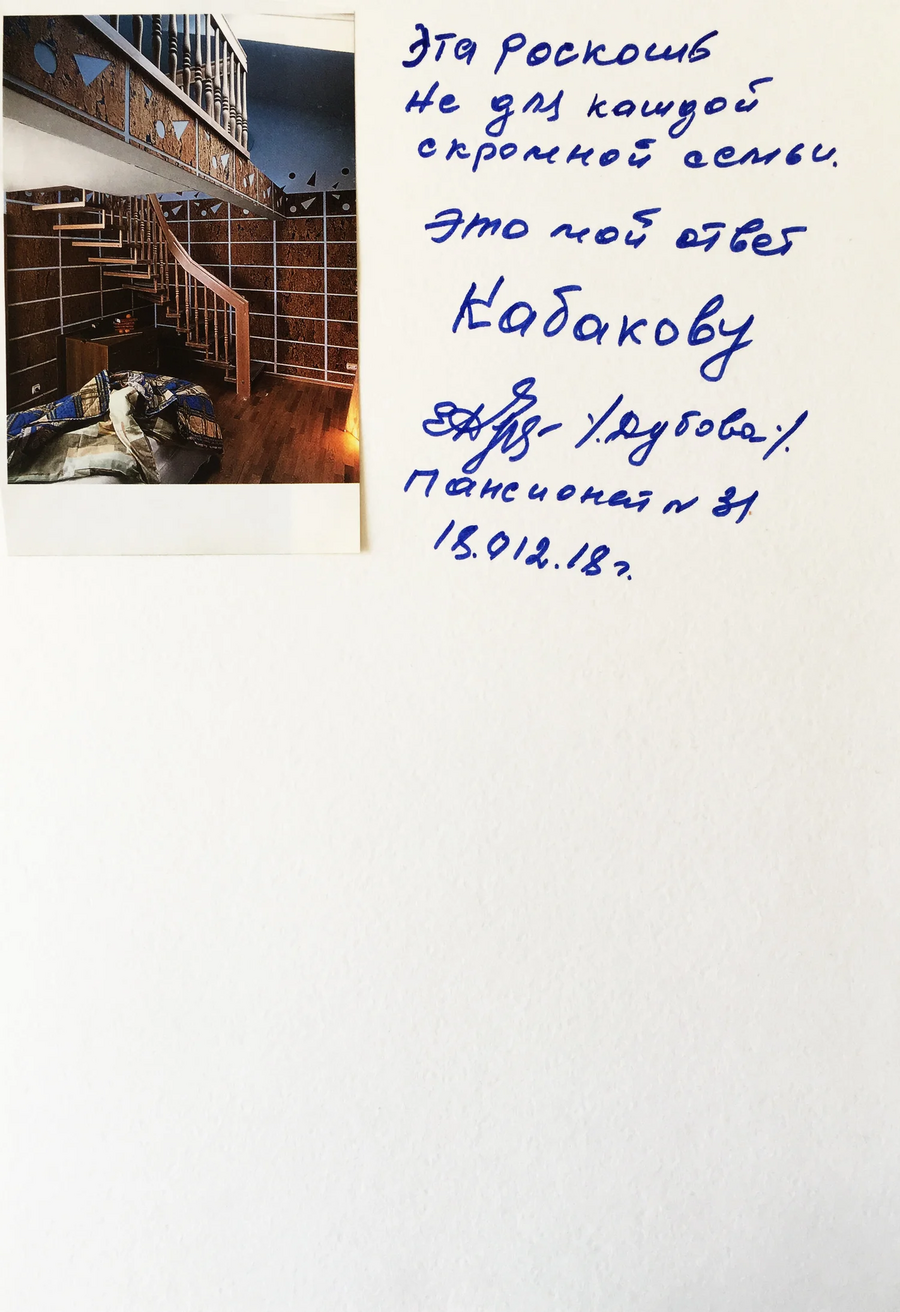 Эта роскошь
Не для кашдой
скромной семьи.
Это мой ответ
Кабакову
/.Дубова./.
Пансионат N 31
18.012.18 г.